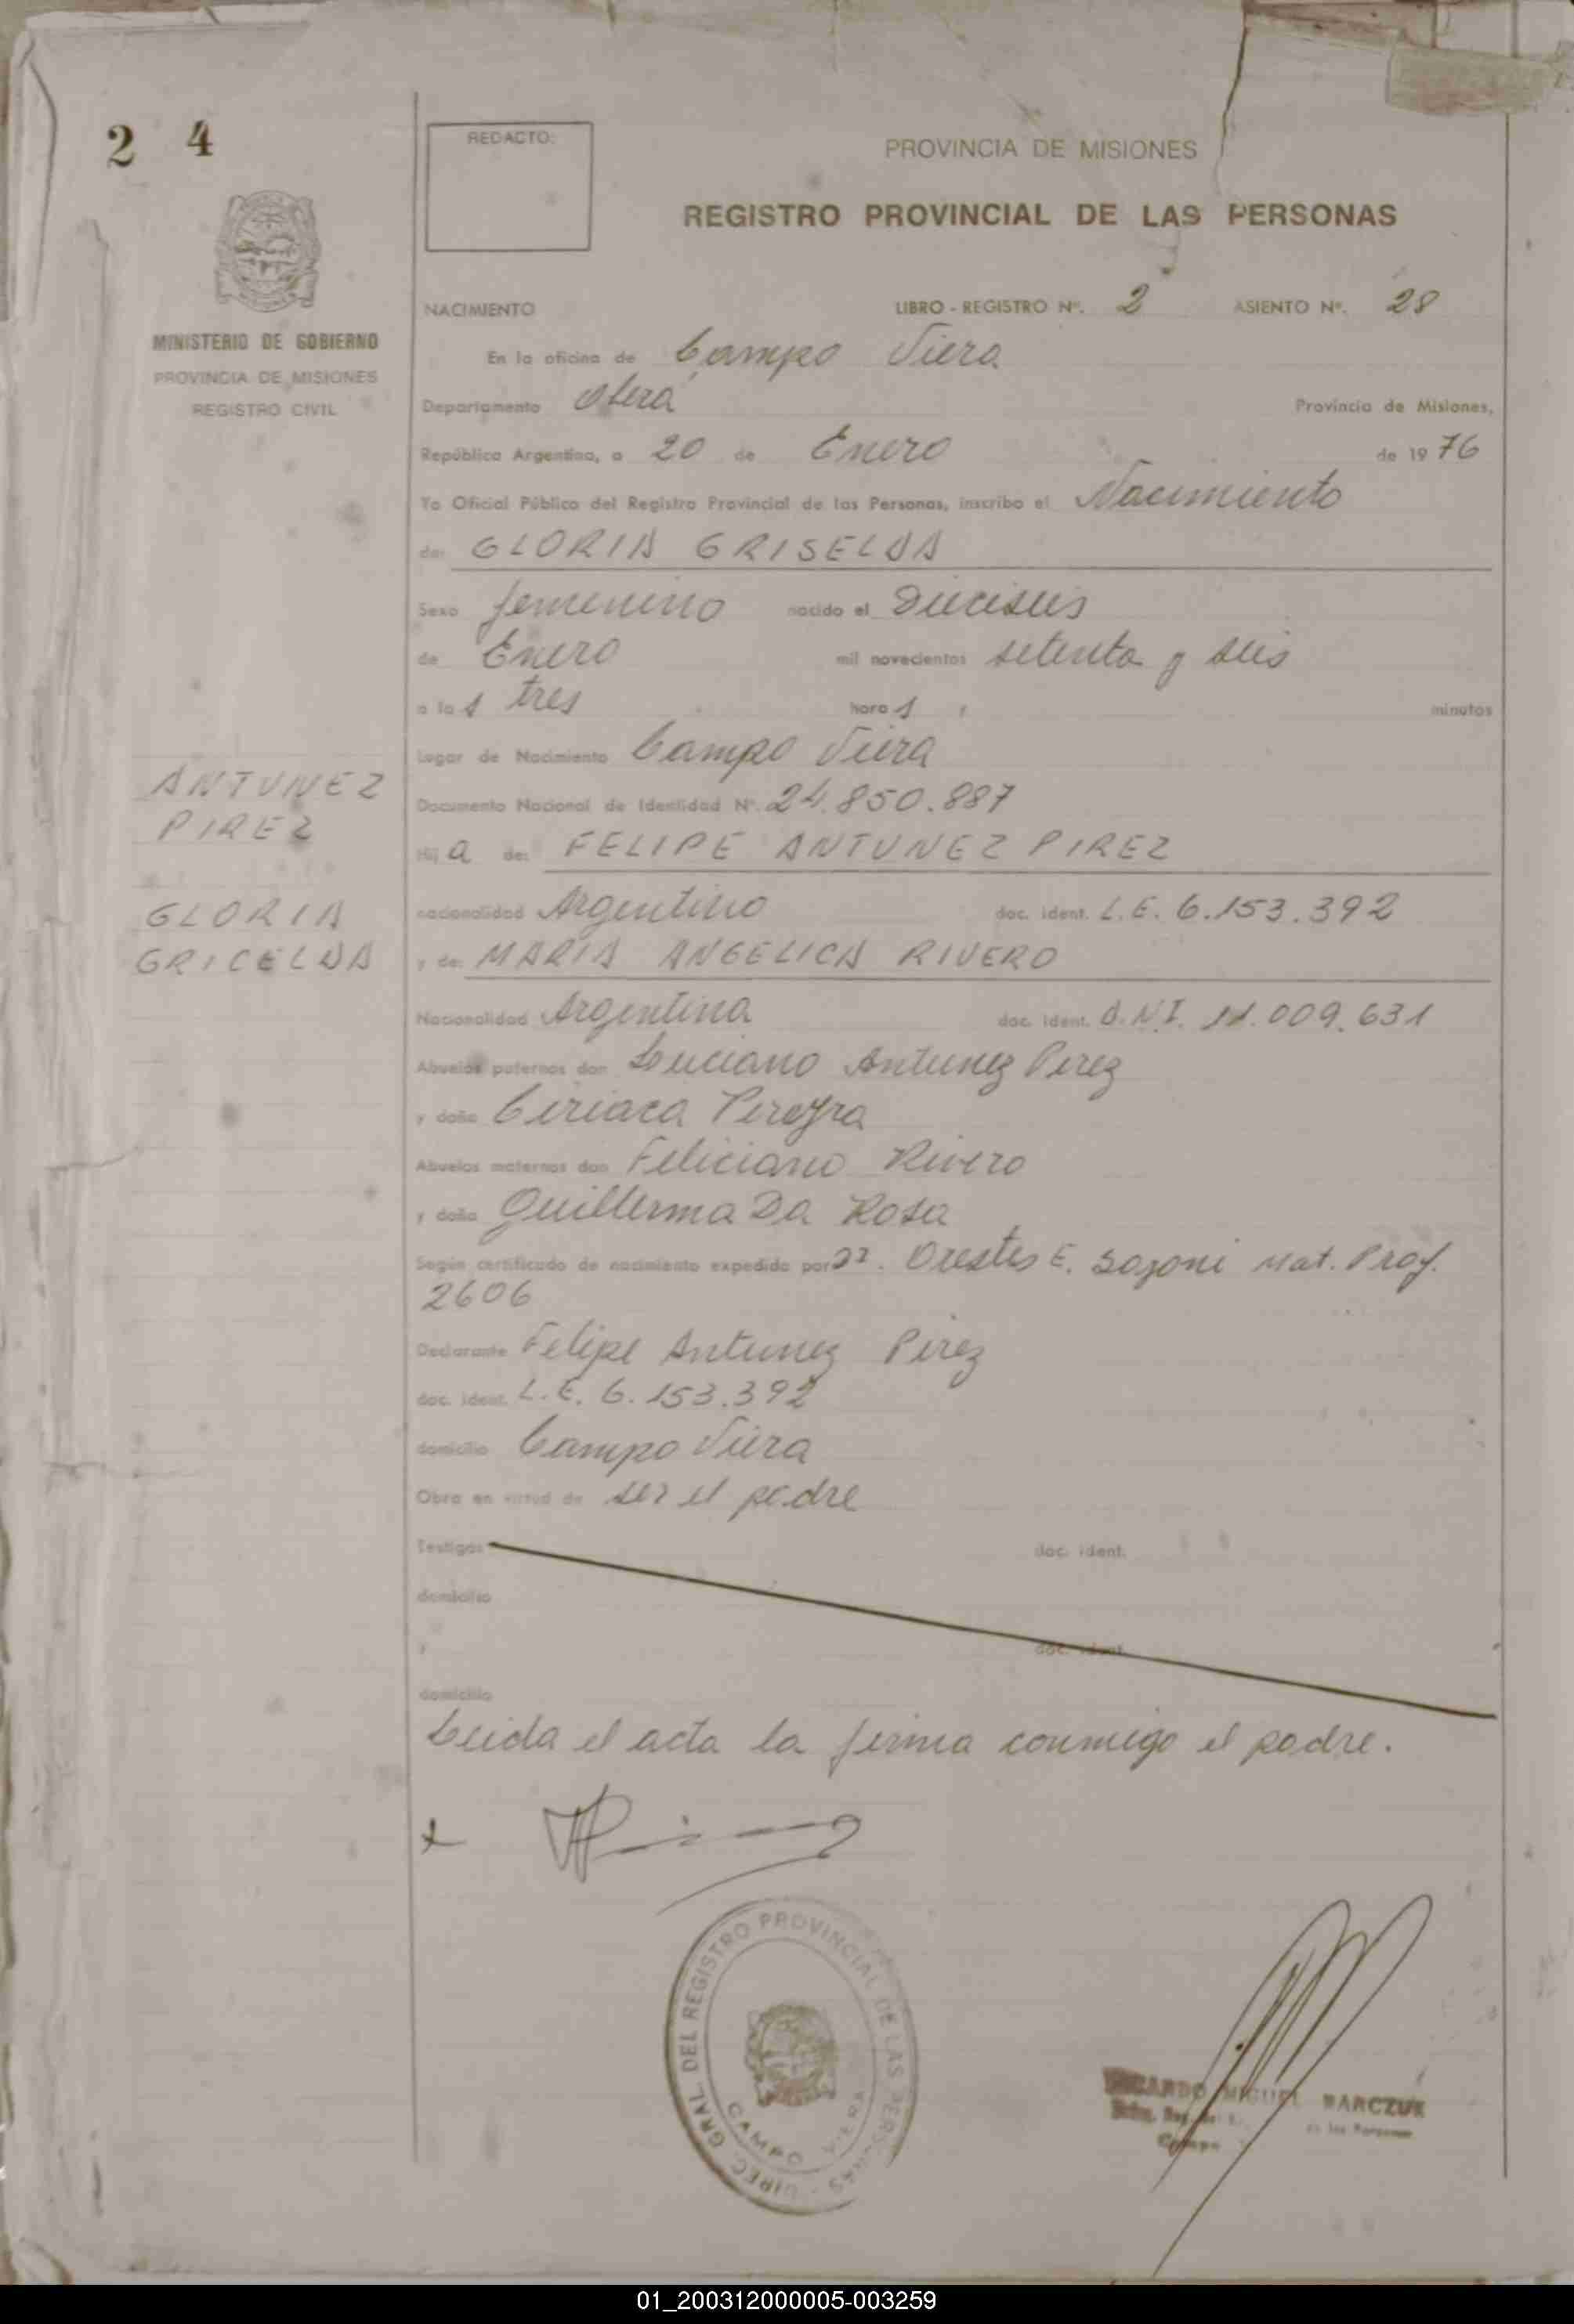 2 4
REDACTO:
PROVINCIA DE MISIONES
REGISTRO PROVINCIAL DE LAS PERSONAS
MINISTERIO DE GOBIERNO
PROVINCIA DE MISIONES
REGISTRO CIVIL
NACIMIENTO LIBRO - REGISTRO Nº. 2 ASIENTO Nº. 28
En la oficina de Campo Viera
Departamento Oberá Provincia de Misiones,
República Argentina, a 20 de Enero de 1976
Yo Oficial Público del Registro Provincial de las Personas, inscribo el Nacimiento
de: GLORIA GRISELDA
Sexo femenino nacido el Dieciseis
de Enero mil novecientos setenta y seis
a las tres horas , minutos
Lugar de Nacimiento Campo Viera
ANTUNEZ
PIREZ
GLORIA
GRICELDA
Documento Nacional de Identidad Nº. 24.850.887
Hija de: FELIPE ANTUNEZ PIREZ
nacionalidad Argentino doc. ident. L.E. 6.153.392
y de: MARIA ANGELICA RIVERO
Nacionalidad Argentina doc. ident. D.N.I. 11.009.631
Abuelos paternos don Luciano Antunez Perez
y doña Ciriaca Pereyra
Abuelos maternos don Feliciano Rivero
y doña Guillerma Da Rosa
Según certificado de nacimiento expedido por Orestes E. Mat. Prof.
2606
Declarante Felipe Antunez Pirez
doc. ident. L.E. 6.153.392
domicilio Campo Viera
Obra en virtud de ser el padre
Testigos doc. ident.
domicilio
y doc. ident.
domicilio
Leida el acta la firma conmigo el padre.
DIREC. GRAL. DEL REGISTRO PROVINCIAL DE LAS PERSONAS
CAMPO VIERA
MIGUEL BARCZUK
de las Personas
Campo
01_200312000005-003259